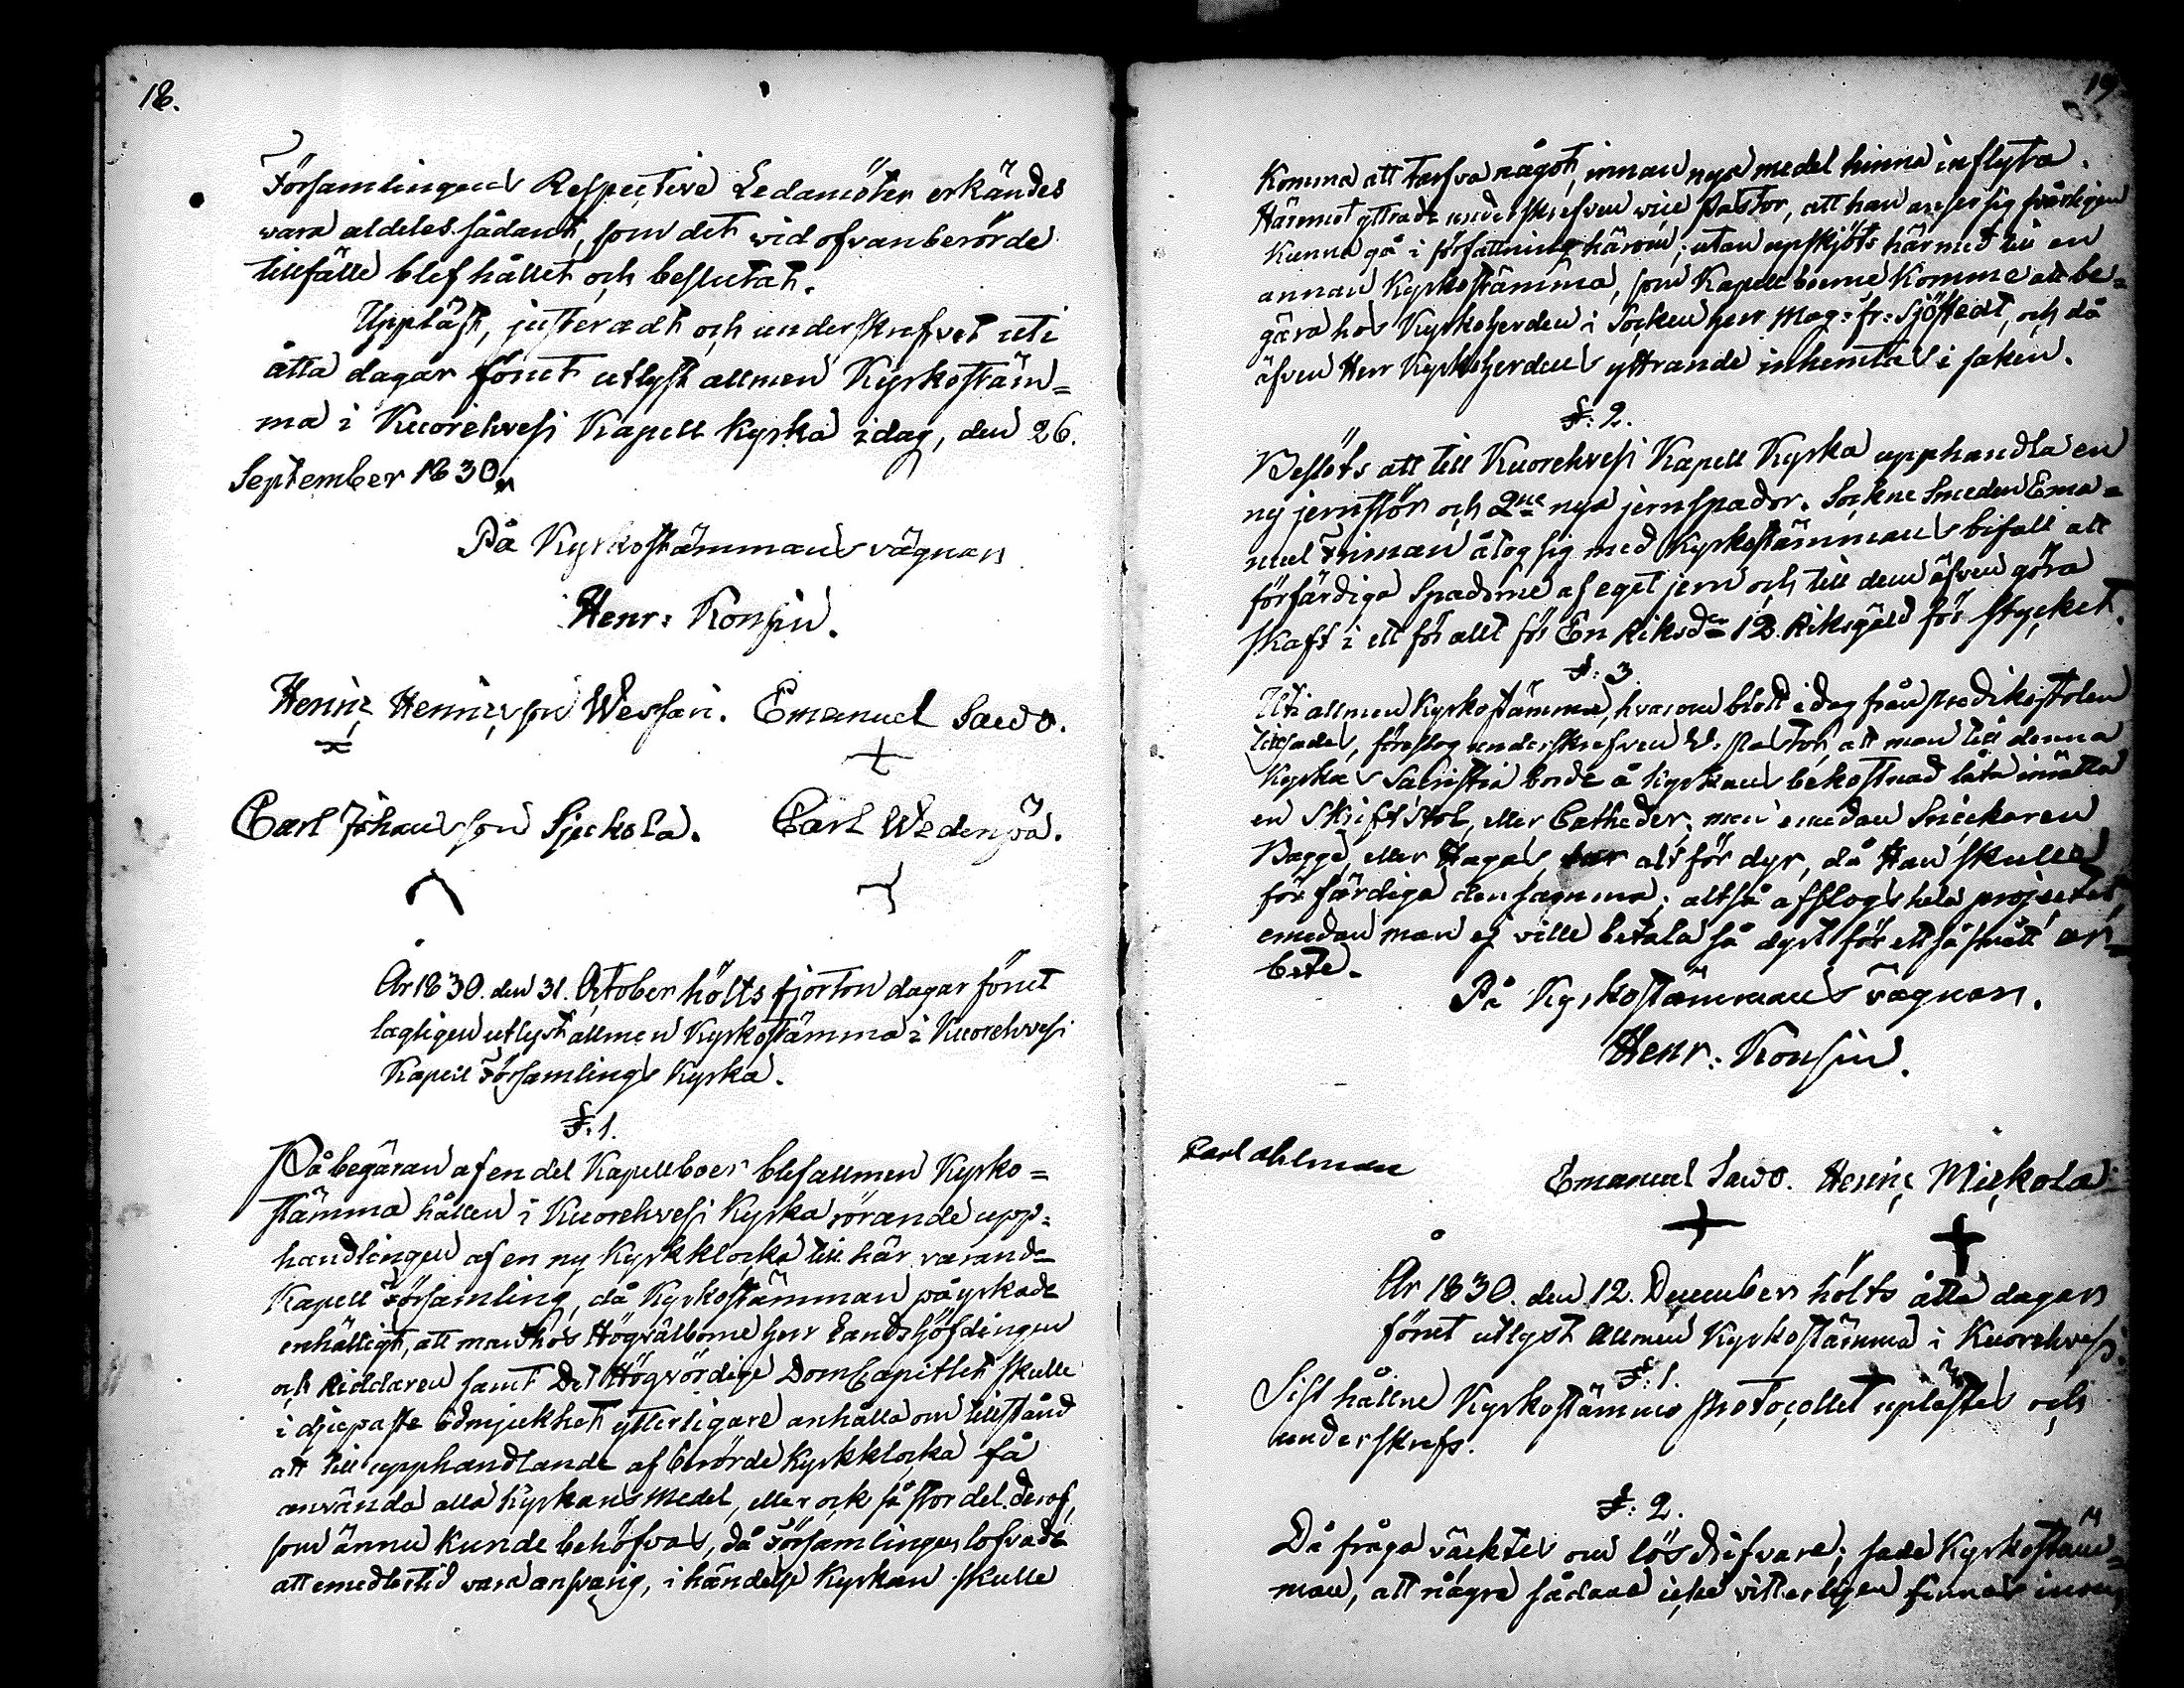 18.
Församlingens Respective Ledamöter erkändes
vara aldeles sådant, som det vid ofvanberörde
tillfälle blef hållet och beslutat.
Uppläst, justeradt och underskrefvet uti
åtta dagar förut utlyst allmen Kyrkostäm=
ma i Kuorehvesi Kapell Kyrka idag, den 26.
September 1830.
På Kyrkostämmans vägnar
Henr: Konsin.
Henric Henricsson Wessari. Emanuel Sawo.
Carl Johansson Sjeckola. Carl Wedenpä.
År 1830. den 31. October hölts fjorton dagar förut
lagligen utlyst allmen Kyrkostämma i Kuorehvesi
Kapell Församlings Kyrka.
§. 1.
På begäran af en del Kapellboer blef allmen Kyrko=
stämma hållen i Kuorehvesi Kyrka rörande upp=
handlingen af en ny Kyrkklocka till här varande
Kapell Församling, då Kyrkostämman påyrkade
enhälligt, att man hos Högvälborne herr Landshöfdingen
och Riddaren samt Det Högvördige DomCapitlet skulle
i djupaste ödmjukhet ytterligare anhålla om tillstånd
att till upphandlande af berörde Kyrkklocka få
använda alla Kyrkans Medel, eller ock så stor del deraf,
som ännu kunde behöfvas, då Församlingen lofvade
att emedlertid vara ansvarig, i händelse Kyrkan skulle
19
Komma att tarfva något, innan nya medel hinna inflyta.
Häremot yttrade underskrefven vice Pastor, att han anser sig svårligen
kunna gå i författning härom; utan upskjöts härmed till en
annan Kyrkostämma, som Kapellboerne Komme att be=
gära hos Kyrkoherden i Socken herr Mag: fr: Sjöstedt, och då
äfven Herr Kyrkoherdens yttrande inhemtas i saken.
§. 2.
Beslöts att till Kuorehvesi Kapell Kyrka upphandla en
ny jernstör och 2ne nya jernspador. Sockne Smeden Ema=
nuel Friman åtog sig med Kyrkostämmans bifall att
förfärdiga Spadorne af eget jern och till dem äfven göra
skaft i ett för allt för En Riksdr 12. Riksgäld för stycket.
§. 3.
Uti allmen Kyrkostämma, hvarom blott idag från predikostolen
lystes, föreslog underskrefven V. Pastor, att man till denna
Kyrkas Sacristia borde å Kyrkans bekostnad låta inrätta
en Skriftstol, eller Catheder; men emedan Snickaren
Bagge, eller Haga, var alt för dyr, då Han skulle
förfärdiga densamma; altså afslogs hela projectet,
emedan man ej ville betala så dyrt för ett så smått ar=
bete.
På Kyrkostämmans vägnar.
Henr: Konsin.
Carl Ahlman
Emanuel Sawo. Henric Mickola
År 1830. den 12. December hölts åtta dagar
förut utlyst Allmen Kyrkostämma i Kuorehvesi.
§. 1.
Sist hållne Kyrkostämmo Protocollet uplästes och
underskrefs.
§. 2.
Då fråga väcktes om lösdrifvare; sade Kyrkostäm=
man, att några sådana icke vitterligen finnas inom